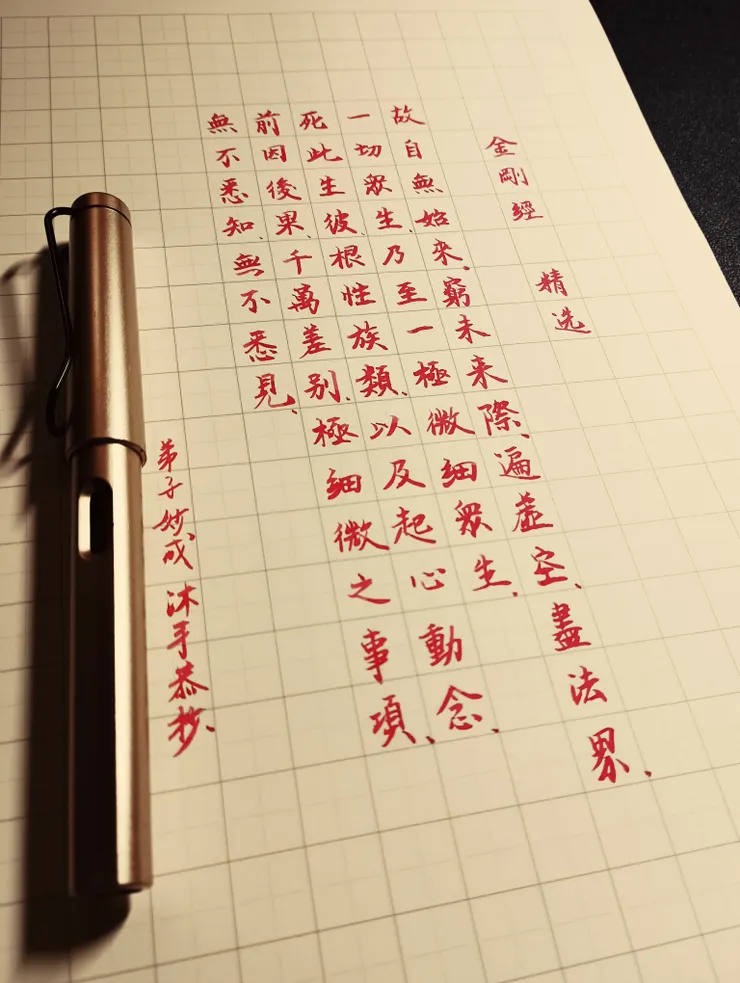 金剛經 精选
故自無始來、窮未来際、遍虚空、盡法界、
一切眾生、乃至一極微細眾生、
死此生彼、根性族類、以及起心動念、
前因後果、千萬差别、極細微之事項、
無不悉知、無不悉見、
弟子妙成 沐手恭抄、